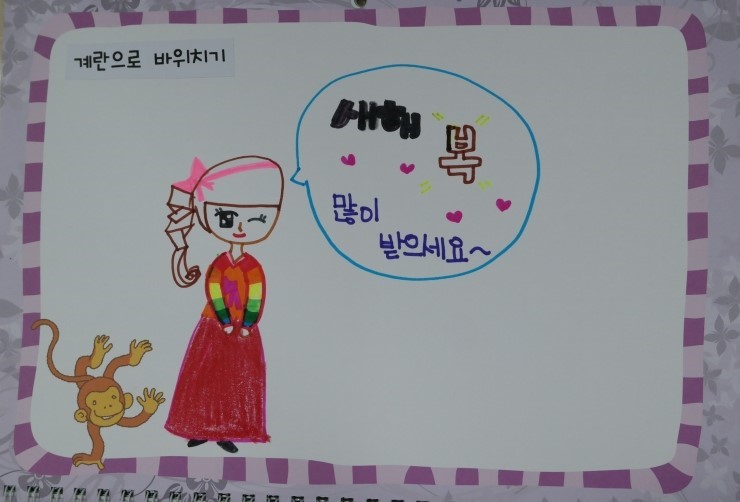 계란으로 바위치기
새해 복
많이
받으세요~